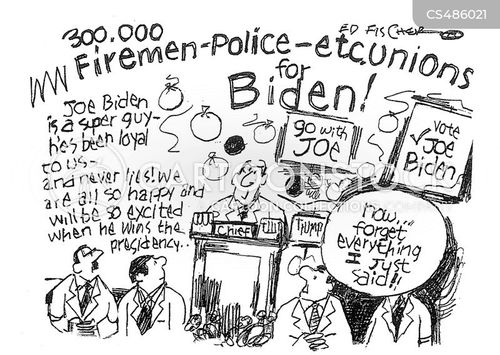 CS486021
ED FISCHER
300.000
Firemen-Police-etc unions
for
Biden!
Joe Biden
is a super guy-
he's been loyal
to us-
and never lies! We
are all so happy and
will be so excited
when he wins the
presidency..
go with
JOE
vote
✓ Joe
Biden
Chief
TRUMP
now...
forget
everything
I just
said!!
CARTOONSTOCK